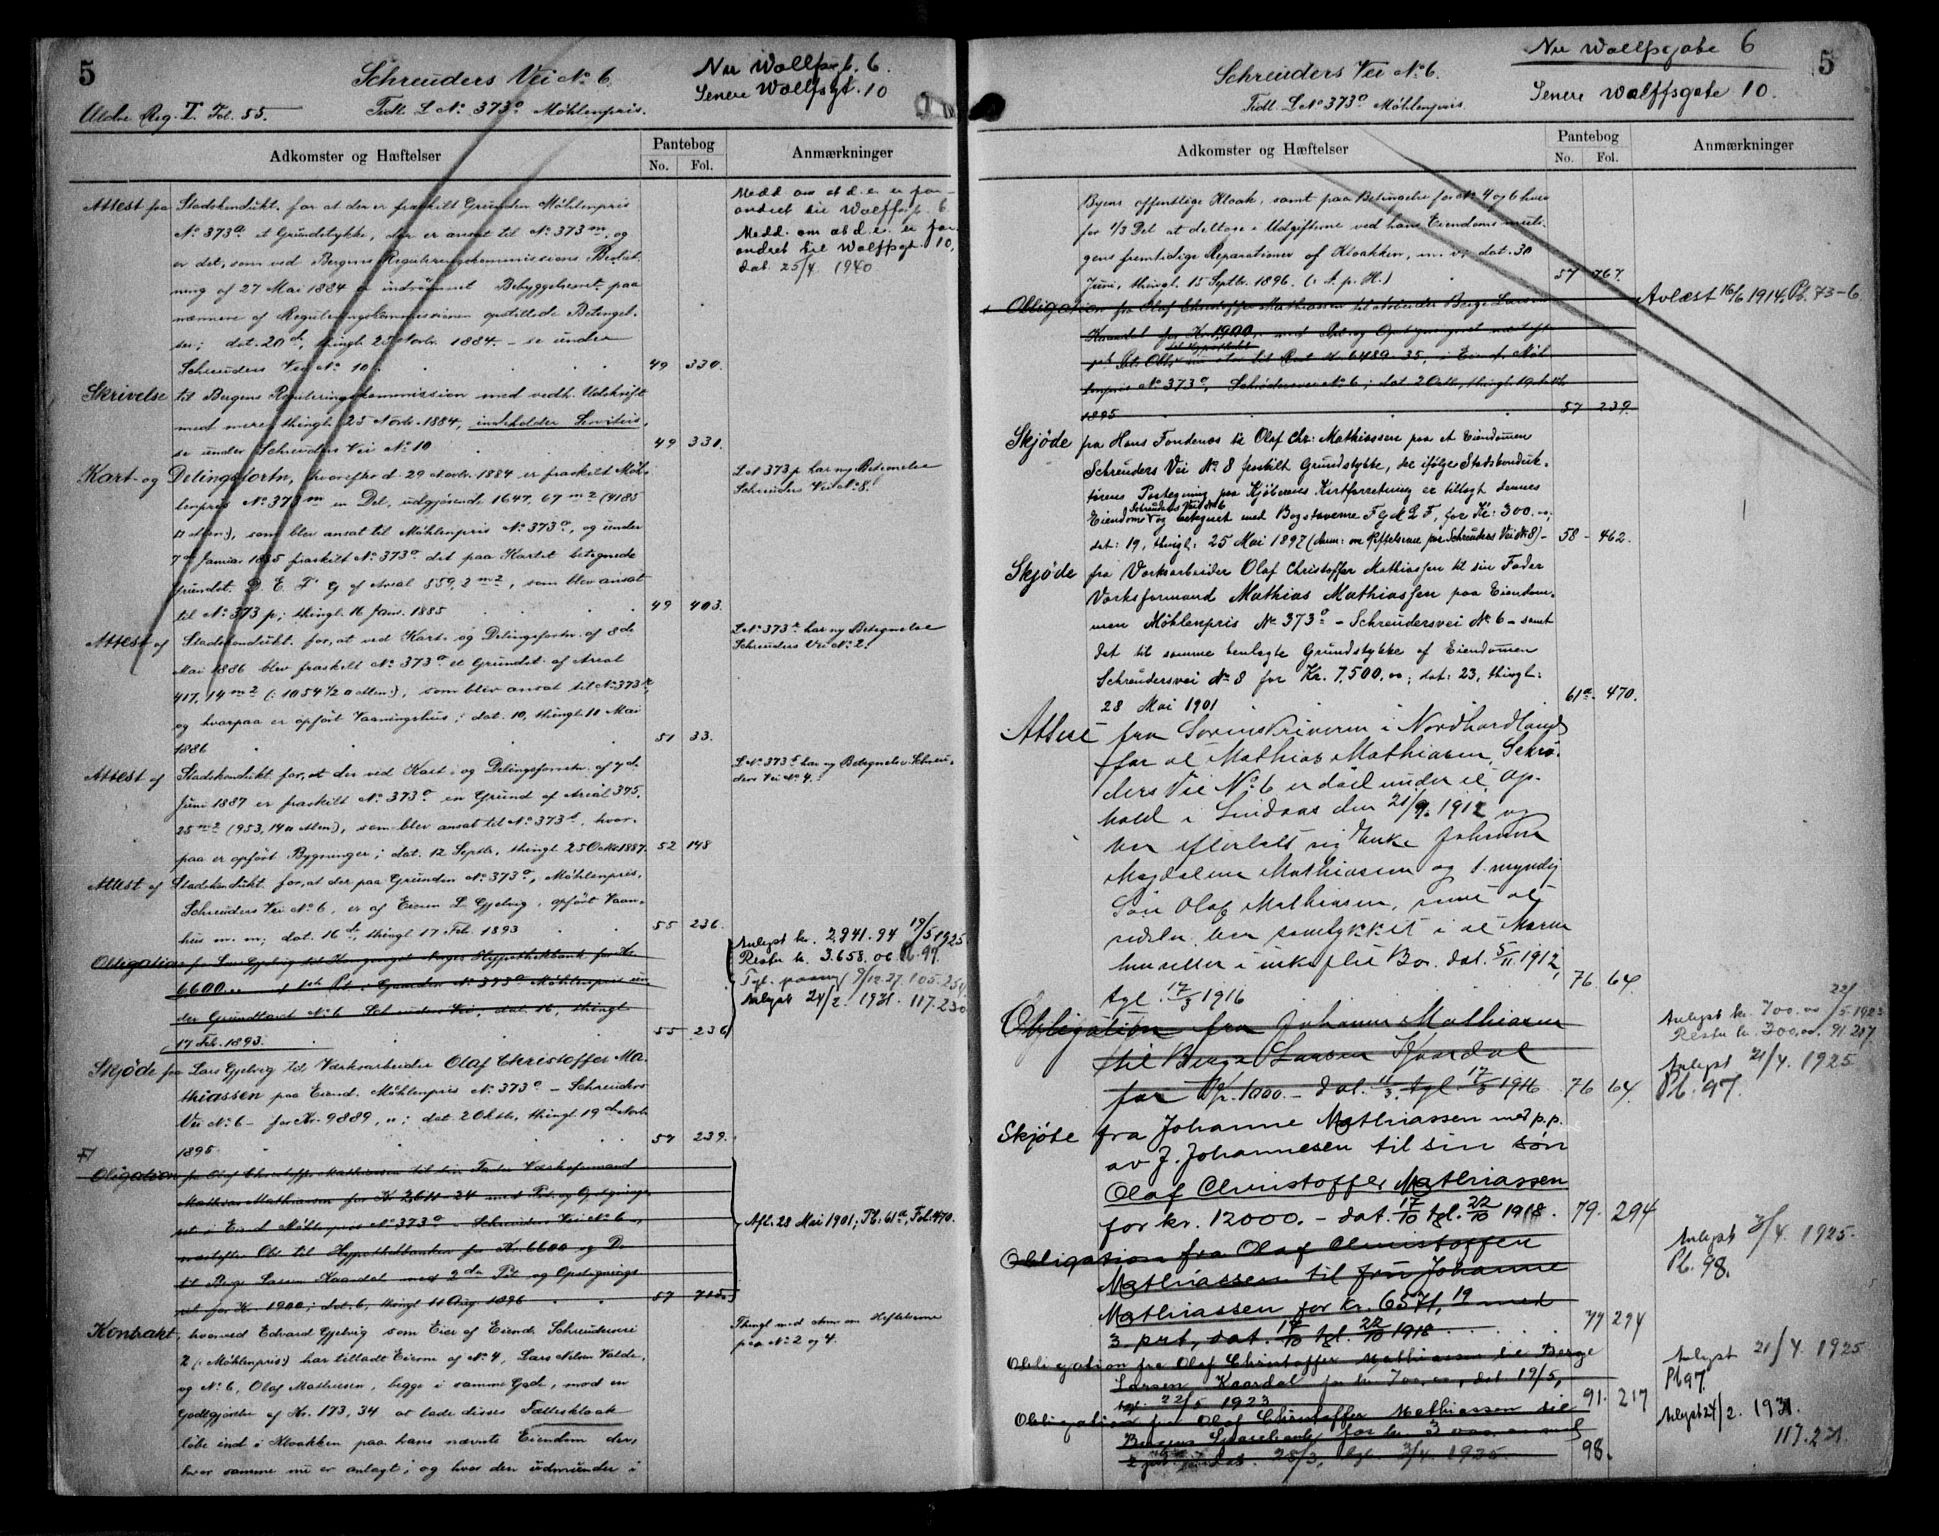 5
Schreuders Vei No 6.
Nu Wolffsgt. 6.
Senere Wolffsgt. 10
Ældre Reg. I. Fol. 55.
Tidl. L. No 373o Møhlenpris.
Adkomster og Hæftelser
Pantebog
No. Fol.
Anmærkninger
Attest fra Stadskondukt. for at der er fraskilt Grunden Møhlenpris
No 373a et Grundstykke, der er ansat til No 373m, og
er det, som ved Bergens Reguleringskommissions Beslut-
ning af 27 Mai 1884 er indrømmet Bebyggelsesret paa
nærmere af Reguleringskommissionen opstillede Betingel-
ser; dat. 20de, thinglt. 25 Novbr. 1884 – se under
Schreuders Vei No 10. 49 330.
Medd. om at d. e. er for-
andret til Wolffsgt. 6
Medd. om at d. e. er for-
andret til Wolffsgt. 10,
dat. 25/4 1940
Skrivelse til Bergens Reguleringskommission med vedh. Udskrift
med mere, thinglt. 25 Novbr. 1884, indeholder Servitut,
se under Schreuders Vei No 10 49 331.
Kart- og Delingsforretn., hvorefter d. 29 Novbr. 1884 er fraskilt Møh-
lenpris No 373m en Del, udgjørende 1647,67 m2 (4185
□ Alen), som blev ansat til Møhlenpris No 373o, og under
7de Januar 1885 fraskilt No 373o det paa Kartet betegnede
Grundst. D. E. F. G af Areal 859,2 m2, som blev ansat
til No 373p; thinglt. 16 Janr. 1885 49 403.
Lot 373p har ny Betegnelse
Schreuders Vei No 8.
Attest af Stadskondukt. for, at ved Kart- og Delingsforretn. af 8de
Mai 1886 blev fraskilt No 373o et Grundst. af Areal
417,14 m2 (: 1054 1/2 □ Alen:), som blev ansat til No 373r,
og hvorpaa er opført Vaaningshus; dat. 10, thinglt. 11 Mai
1886 51 33.
L. No 373r har ny Betegnelse
Schreuders Vei No 2.
Attest af Stadskondukt. for, at der ved Kart- og Delingsforretn. af 7 d.
Juni 1887 er fraskilt No 373o en Grund af Areal 375,
25 m2 (953,14 □ Alen), som blev ansat til No 373s, hvor-
paa er opført Bygninger; dat. 12 Septbr., thinglt. 25 Oktbr. 1887. 52 148
L. No 373s har ny Betegnelse Schreu-
ders Vei No 4.
Attest af Stadskondukt. for, at der paa Grunden No 373o, Møhlenpris,
Schreuders Vei No 6, er af Eieren L. Gjelvig, opført Vaan-
hus m. m; dat. 16de, thinglt. 17 Feb. 1893 55 236.
Obligation fra Lars Gjelvig til Kongeriget Norges Hypothekbank for Kr.
6600.. 1st Pt. i Grunden No 373o Møhlenpris un-
der Grundtaxt No 6 Schreuders Vei, dat. 16, thinglt.
17 Feb. 1893. 55 236
Avlyst kr. 2941.94 19/5 1925
Restr. kr. 3.658.06 Pb. 97.
9/12 27. 105. 254
Avlyst 24/2 1931. 117. 230
Skjøde fra Lars Gjelvig til Værksarbeider Olaf Christoffer Ma-
thiassen paa Eiend. Møhlenpris No 373o – Schreuders
Vei No 6 – for Kr. 9889, "; dat. 2 Oktbr., thinglt. 19de Novbr.
1895 57 239.
Obligation fra Olaf Christoffer Mathiassen til sin Fader Værksformand
Mathias Mathiassen for Kr. 2611.34 med Pr. og Opsigings-
ret i Eiend. Møhlenpris No 373o – Schreuders Vei No 6,
næstefter Obl. til Hypothekbanken for Kr. 6600 og Do
til Berge Larsen Kaardal med 2den Pr. og Opsigings-
ret for Kr. 1900; dat. 6, thinglt. 11 Aug. 1896 57 715.
Afl. 28 Mai 1901; Pb. 61a, Fol. 470.
Kontrakt, hvorved Edvard Gjelvig som Eier af Eiend. Schreudersvei
2 (: Møhlenpris:) har tilladt Eierne af No 4, Lars Nilsen Valde,
og No 6, Olaf Mathiesen, begge i samme Gade, mod en
Godtgjørelse af Kr. 173,34 at lade disses Fælleskloak
løbe ind i Kloakken paa hans nævnte Eiendom der,
hvor samme nu er anlagt; og hvor den udmunder i
Thinglt. med Anm. om Heftelserne
paa No 2 og 4.
5
Schreuders Vei No 6.
Nu Wolffsgate 6
Senere Wolffsgate 10.
Tidl. L. No 373o Møhlenpris.
Adkomster og Hæftelser
Pantebog
No. Fol.
Anmærkninger
Byens offentlige Kloak, samt paa Betingelse for No 4 og 6 hver
for 1/3 Del at deltage i Udgifterne ved hans Eiendoms muli-
gens fremtidige Reparationer af Kloakken, m. v; dat. 30
Juni, thinglt. 15 Septbr. 1896. (: A. p. H.) 57 767.
Obligation fra Olaf Christoffer Mathiassen til Arbeider Berge Larsen
Kaardal for Kr. 1900, med Pr. og Opsigningsret næstefter
1ste Pr. Obl. til Hypothekbk. til Rest Kr. 6489.35, i Eiend. Møh-
lenpris No 373o, Schrødersvei No 6; dat. 2 Oktb., thinglt. 19 Novbr.
1895 57 239.
Avlæst 16/6 1914, Pb. 73-6
Skjøde fra Hans Fondenæs til Olaf Chr: Mathiassen paa et Eiendommen
Schreuders Vei No 8 fraskilt Grundstykke, der ifølge Stadskonduk-
tørens Paategning paa Kjøberens Kartforretning er tillagt dennes
Eiendom Schreuders Vei No 6 og betegnet med Bogstaverne F G K L F, for Kr: 300.00;
dat: 19, thinglt: 25 Mai 1897 (Anm: om Heftelserne paa Schreuders Vei No 8) – 58 – 462.
Skjøde fra Værksarbeider Olaf Christoffer Mathiassen til sin Fader
Værksformand Mathias Mathiassen paa Eiendom-
men Møhlenpris No 373o – Schreudersvei No 6 – samt
det til samme henlagte Grundstykke af Eiendommen
Schreudersvei No 8 for Kr. 7,500.00; dat: 23, thinglt:
28 Mai 1901 61a. 470.
Attest fra Sorenskriveren i Nordhordland
for at Mathias Mathiasen, Schrø-
ders Vei No 6 er død under et Op-
hold i Lindaas den 21/9. 1912 og
har efterlatt sig Enke Johanne
Magdalene Mathiasen og 1 myndig
Søn Olaf Mathiasen, samt at
sidste har samtykket i at Moren
hensitter i uskiftet Bo. dat. 5/11. 1912,
tgl. 17/3 1916 76. 64.
Obligation fra Johanne Mathiasen
til Berge Larsen Kaardal
for Kr. 1000. – dat. 11/3, tgl. 17/3 1916 76 64.
Avlyst kr. 700.00 22/5 1923
Restr. kr. 300,00. 91. 217
Avlyst 21/4. 1925
Pb. 97.
Skjøte fra Johanne Mathiassen med p.p.
av J. Johannesen til sin søn
Olaf Christoffer Mathiassen
for kr. 12000. – dat. 17/10 tgl. 22/10 1918. 79. 294
Obligation fra Olaf Christoffer
Mathiassen til fru Johanne
Mathiassen for kr. 6571,19 med
3. prt, dat. 17/10 tgl. 22/10 1918 79 294
Avlyst 3/4. 1925.
Pb. 98.
Obligation fra Olaf Christoffer Mathiassen til Berge
Larsen Kaardal for kr. 700,00, dat. 19/5,
tgl. 22/5 1923 91. 217
Avlyst 21/4. 1925
Pb 97.
Obligation fra Olaf Christoffer Mathiassen til
Bergens Sparebank for kr. 3000,00 med
2 prt. dat. 28/3, tgl. 3/4. 1925 98.
Avlyst 24/2. 1931.
117. 231.